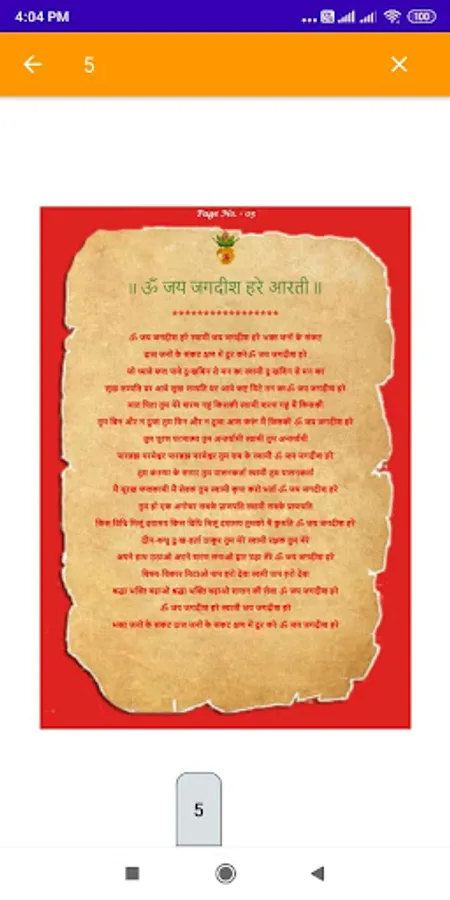 4:04 PM
100
5
Page No. - 05
॥ ॐ जय जगदीश हरे आरती ॥
*****************
ॐ जय जगदीश हरे स्वामी जय जगदीश हरे भक्त जनों के संकट
दास जनों के संकट क्षण में दूर करे ॐ जय जगदीश हरे
जो ध्यावे फल पावे दुःखबिन से मन का स्वामी दुःखबिन से मन का
सुख सम्पति घर आवे सुख सम्पति घर आवे कष्ट मिटे तन का ॐ जय जगदीश हरे
मात पिता तुम मेरे शरण गहूं किसकी स्वामी शरण गहूं मैं किसकी
तुम बिन और न दूजा तुम बिन और न दूजा आस करूं मैं जिसकी ॐ जय जगदीश हरे
तुम पूरण परमात्मा तुम अन्तर्यामी स्वामी तुम अन्तर्यामी
पारब्रह्म परमेश्वर पारब्रह्म परमेश्वर तुम सब के स्वामी ॐ जय जगदीश हरे
तुम करुणा के सागर तुम पालनकर्ता स्वामी तुम पालनकर्ता
मैं मूरख फलकामी मैं सेवक तुम स्वामी कृपा करो भर्ता ॐ जय जगदीश हरे
तुम हो एक अगोचर सबके प्राणपति स्वामी सबके प्राणपति
किस विधि मिलूं दयामय किस विधि मिलूं दयामय तुमको मैं कुमति ॐ जय जगदीश हरे
दीन-बन्धु दुःख-हर्ता ठाकुर तुम मेरे स्वामी रक्षक तुम मेरे
अपने हाथ उठाओ अपने शरण लगाओ द्वार पड़ा तेरे ॐ जय जगदीश हरे
विषय-विकार मिटाओ पाप हरो देवा स्वामी पाप हरो देवा
श्रद्धा भक्ति बढ़ाओ श्रद्धा भक्ति बढ़ाओ सन्तन की सेवा ॐ जय जगदीश हरे
ॐ जय जगदीश हरे स्वामी जय जगदीश हरे
भक्त जनों के संकट दास जनों के संकट क्षण में दूर करे ॐ जय जगदीश हरे
5